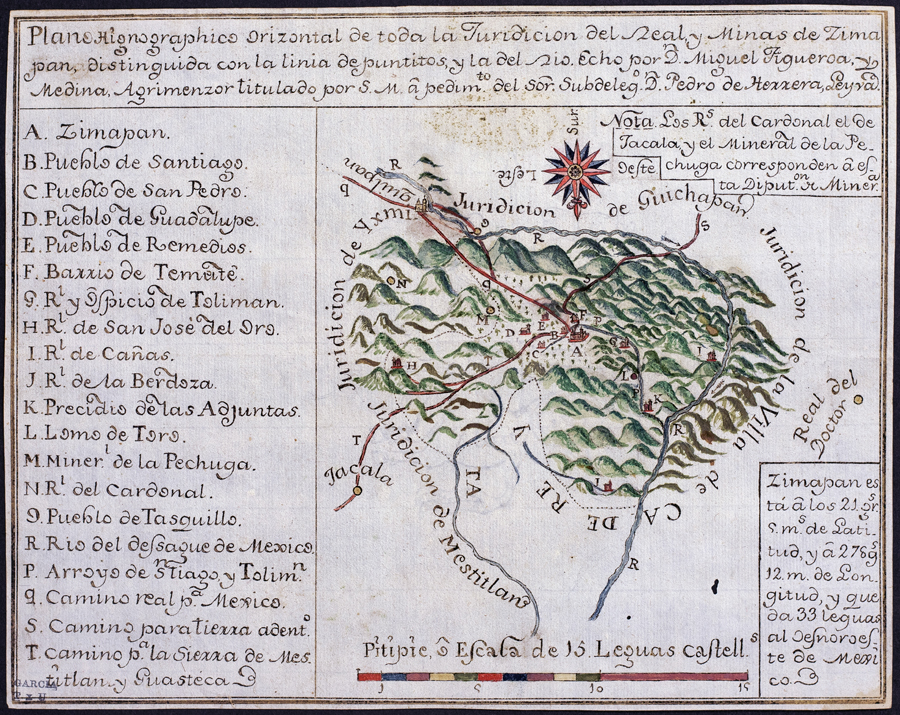 Plano Hignographico Orizontal de toda la Juridicion del Real, y Minas de Zima
pan, distinguida con la linia de puntitos, y la del Rio. Echo por D.ⁿ Miguel Figueroa, y
Medina, Agrimenzor titulado por S. M. â pedim.to del Sõr. Subdeleg.o D. Pedro de Herrera, Leyva.
A. Zimapan.
B. Pueblo de Santiago.
C. Pueblo de San Pedro.
D. Pueblo de Guadalupe.
E. Pueblo de Remedios.
F. Barrio de Temûte.
G. R.l y Ôspicio de Toliman.
H. R.l de San José del Oro.
I. R.l de Cañas.
J. R.l de la Berdoza.
K. Precidio de las Adjuntas.
L. Lomo de Toro.
M. Miner.l de la Pechuga.
N. R.l del Cardonal.
O. Pueblo de Tasquillo.
R. Rio del dessague de Mexico.
P. Arroyo de S.nTiago, y Tolim.n
q. Camino real p.a Mexico.
S. Camino para tierra adent.o
T. Camino p.a la Sierra de Mes
titlan. y Guasteca
Nota. Los R.s del Cardonal el de
Jacala y el Mineral de la Pe
chuga corresponden â es
ta Diput.on de Miner.a
Sur
Leste
Oeste
Juridicion de Yxmiquilpan
Juridicion de Guichapan
Juridicion de la Villa de CADEREYTA
Juridicion de Mestitlan
Jacala
Real del
Doctor
R
q
O
R
S
S
N
q
M
D
E
N
F
P
B
A
C
G
T
H
L
P
K
I
R
J
T
R
Zimapan es
tá â los 21 gr.s
5. m.s de Lati-
tud, y â 276 g.s
12. m. de Lon-
gitud, y que
da 33 leguas
al Oesnoroes
te de Mexi
co.
Pitipie, ô Escala de 15. Leguas Castell.s
1
5
10
15
GARCIA